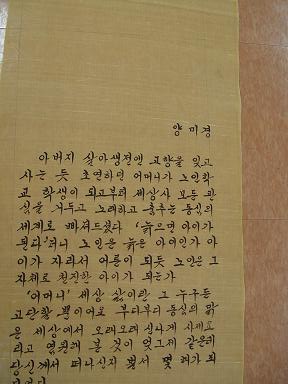 양미경
아버지 살아생전엔 고향을 잊고
사는 듯 초연하던 어머니가 노인학
교 학생이 되고부터 세상사 모든 관
심을 거두고 노래하고 춤추는 동심의
세계로 빠져드셨다 '늙으면 아이가
된다'더니 노인은 늙은 아이인가 아
이가 자라서 어른이 되듯 노인은 그
자체로 천진한 아이가 되는가
'어머니' 세상 삶이란 그 누구든
고단할 뿐이어요 부디부디 동심의 맑
은 세상에서 오래오래 신나게 사세요
라고 염원해 본 것이 엊그제 같은데
당신께서 떠나신지 벌써 몇 해가 되